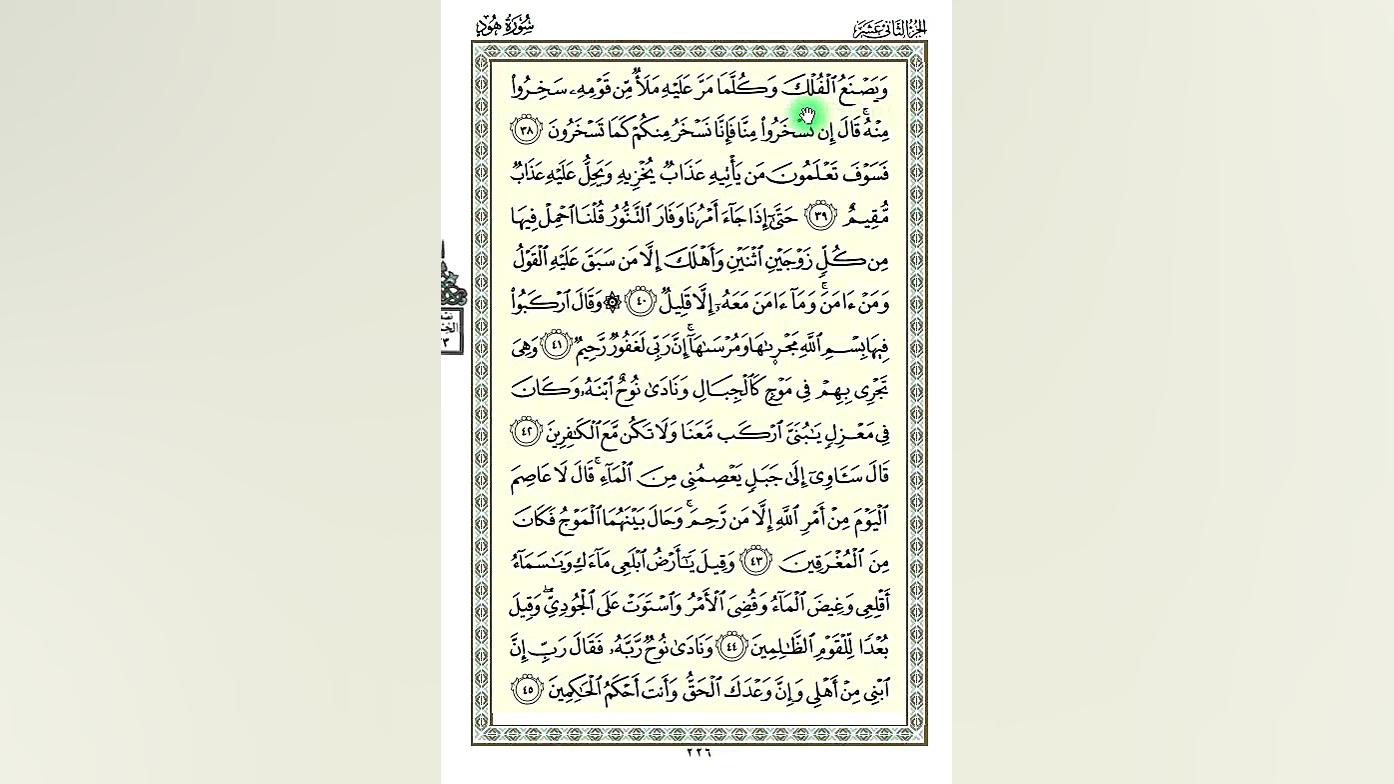 الجزء الثاني عشر
سُورَةُ هُودٍ
وَيَصْنَعُ الْفُلْكَ وَكُلَّمَا مَرَّ عَلَيْهِ مَلَأٌ مِّن قَوْمِهِۦ سَخِرُوا۟
مِنْهُ ۚ قَالَ إِن تَسْخَرُوا۟ مِنَّا فَإِنَّا نَسْخَرُ مِنكُمْ كَمَا تَسْخَرُونَ ٣٨
فَسَوْفَ تَعْلَمُونَ مَن يَأْتِيهِ عَذَابٌ يُخْزِيهِ وَيَحِلُّ عَلَيْهِ عَذَابٌ
مُّقِيمٌ ٣٩ حَتَّىٰٓ إِذَا جَآءَ أَمْرُنَا وَفَارَ التَّنُّورُ قُلْنَا احْمِلْ فِيهَا
مِن كُلٍّ زَوْجَيْنِ اثْنَيْنِ وَأَهْلَكَ إِلَّا مَن سَبَقَ عَلَيْهِ الْقَوْلُ
وَمَنْ ءَامَنَ ۚ وَمَآ ءَامَنَ مَعَهُۥٓ إِلَّا قَلِيلٌ ٤٠ ۞ وَقَالَ ارْكَبُوا۟
فِيهَا بِسْمِ اللَّهِ مَجْر۪ىٰهَا وَمُرْسَىٰهَآ ۚ إِنَّ رَبِّى لَغَفُورٌ رَّحِيمٌ ٤١ وَهِىَ
تَجْرِى بِهِمْ فِى مَوْجٍ كَالْجِبَالِ وَنَادَىٰ نُوحٌ ابْنَهُۥ وَكَانَ
فِى مَعْزِلٍ يَٰبُنَىَّ ارْكَب مَّعَنَا وَلَا تَكُن مَّعَ الْكَٰفِرِينَ ٤٢
قَالَ سَـَٔاوِىٓ إِلَىٰ جَبَلٍ يَعْصِمُنِى مِنَ الْمَآءِ ۚ قَالَ لَا عَاصِمَ
الْيَوْمَ مِنْ أَمْرِ اللَّهِ إِلَّا مَن رَّحِمَ ۚ وَحَالَ بَيْنَهُمَا الْمَوْجُ فَكَانَ
مِنَ الْمُغْرَقِينَ ٤٣ وَقِيلَ يَٰٓأَرْضُ ابْلَعِى مَآءَكِ وَيَٰسَمَآءُ
أَقْلِعِى وَغِيضَ الْمَآءُ وَقُضِىَ الْأَمْرُ وَاسْتَوَتْ عَلَى الْجُودِىِّ ۖ وَقِيلَ
بُعْدًا لِّلْقَوْمِ الظَّٰلِمِينَ ٤٤ وَنَادَىٰ نُوحٌ رَّبَّهُۥ فَقَالَ رَبِّ إِنَّ
ابْنِى مِنْ أَهْلِى وَإِنَّ وَعْدَكَ الْحَقُّ وَأَنتَ أَحْكَمُ الْحَٰكِمِينَ ٤٥
٢٢٦